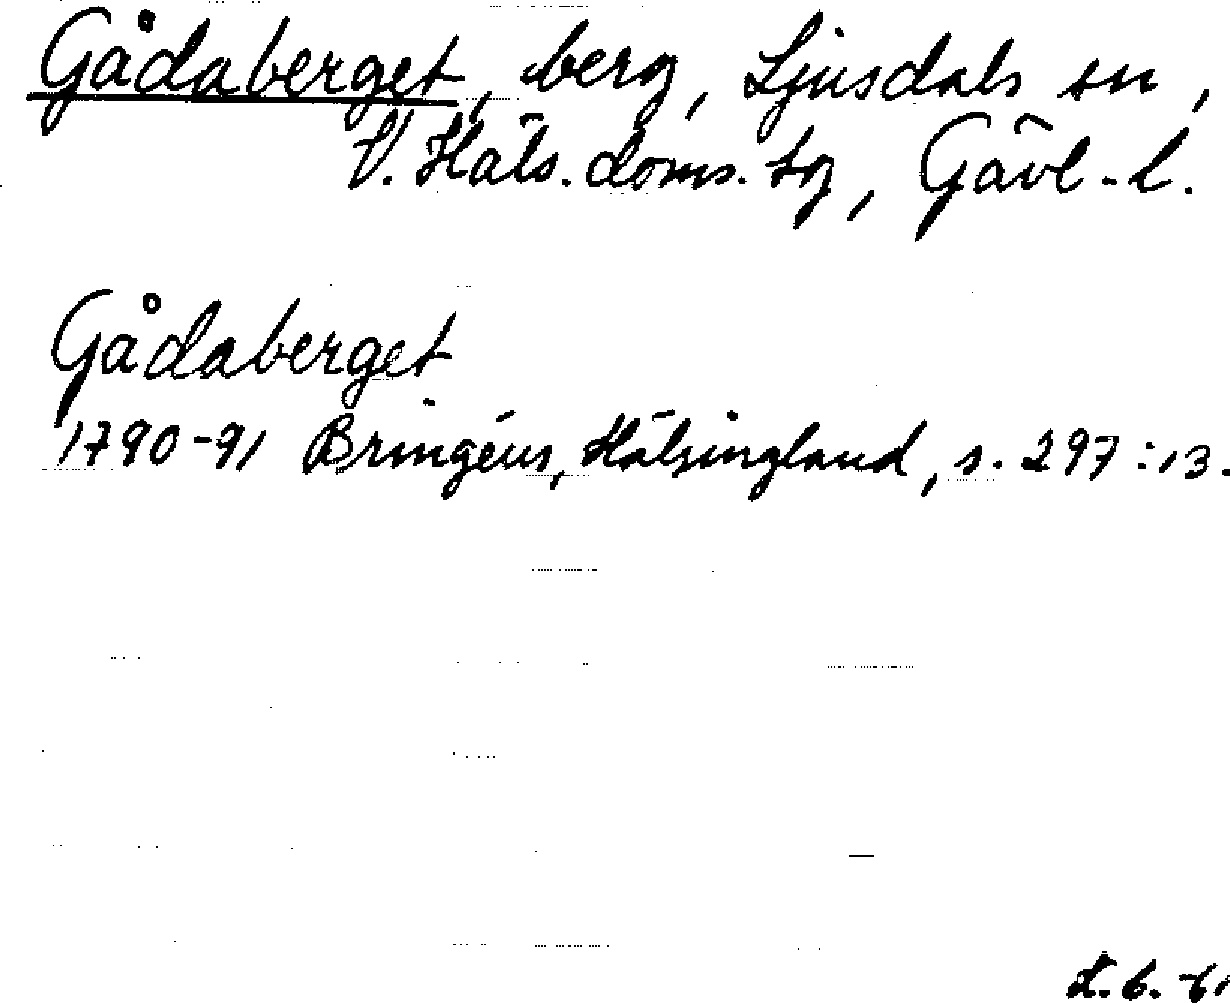 Gådaberget, berg, Ljusdals sn,
V. Häls. doms. tg, Gävl. l.
Gådaberget
1790-91 Bringéus, Hälsingland, s. 297:13.